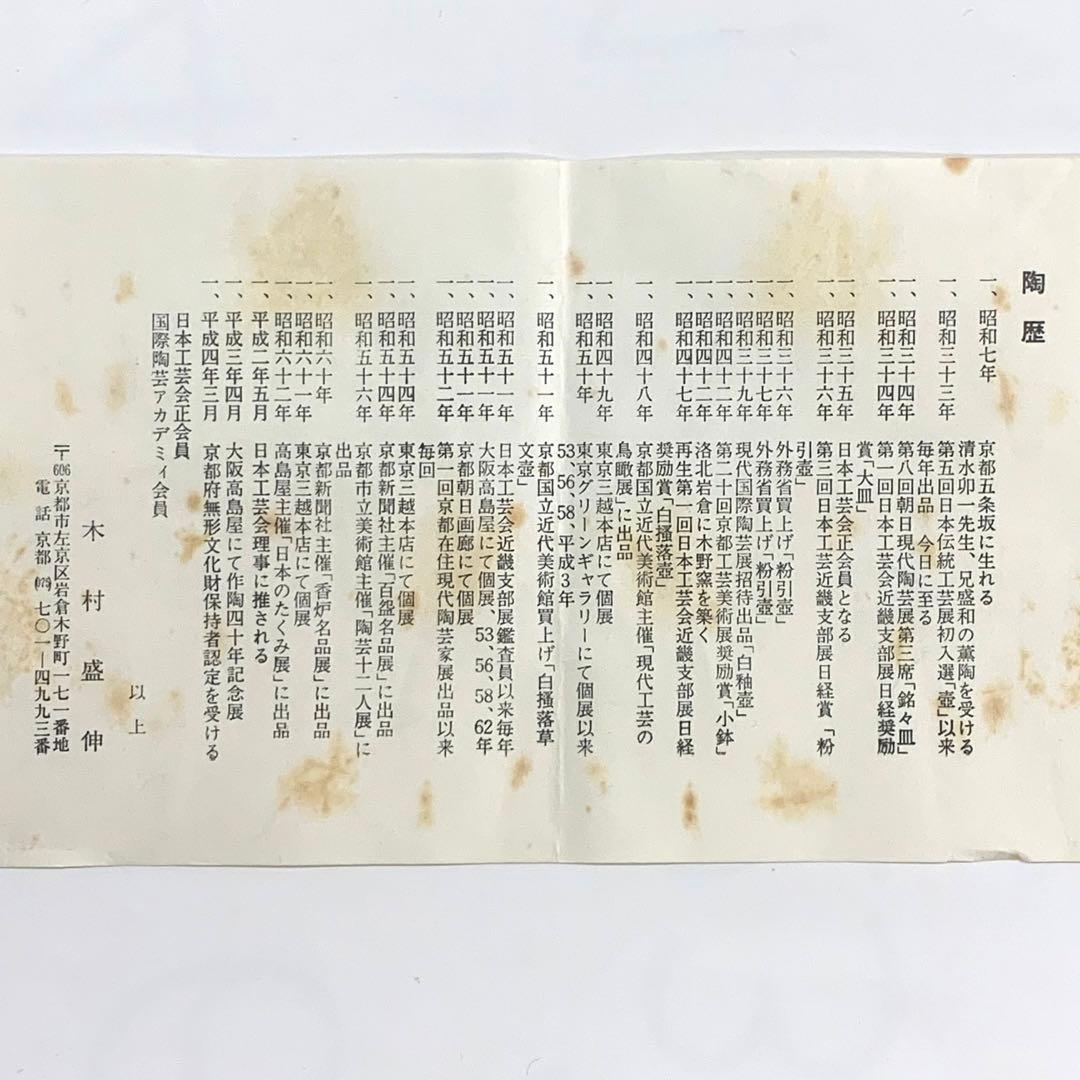 陶歴
一、昭和七年 京都五条坂に生れる
清水卯一先生、兄盛和の薫陶を受ける
一、昭和三十三年 第五回日本伝統工芸展初入選「壺」以来
毎年出品 今日に至る
一、昭和三十四年 第八回朝日現代陶芸展第三席「銘々皿」
一、昭和三十四年 第一回日本工芸会近畿支部展日経奨励
賞「大皿」
一、昭和三十五年 日本工芸会正会員となる
一、昭和三十六年 第三回日本工芸近畿支部展日経賞「粉
引壺」
一、昭和三十六年 外務省買上げ「粉引壺」
一、昭和三十七年 外務省買上げ「粉引壺」
一、昭和三十九年 現代国際陶芸展招待出品「白釉壺」
一、昭和四十二年 第二十回京都工芸美術展奨励賞「小鉢」
一、昭和四十二年 洛北岩倉に木野窯を築く
一、昭和四十七年 再生第一回日本工芸会近畿支部展日経
奨励賞「白搔落壺」
一、昭和四十八年 京都国立近代美術館主催「現代工芸の
鳥瞰展」に出品
一、昭和四十九年 東京三越本店にて個展
一、昭和五十年 東京グリーンギャラリーにて個展以来
53、56、58、平成3年
一、昭和五十一年 京都国立近代美術館買上げ「白搔落草
文壺」
一、昭和五十一年 日本工芸会近畿支部展鑑査員以来毎年
一、昭和五十一年 大阪高島屋にて個展、53、56、58、62年
一、昭和五十一年 京都朝日画廊にて個展
一、昭和五十二年 第一回京都在住現代陶芸家展出品以来
毎回
一、昭和五十四年 東京三越本店にて個展
一、昭和五十四年 京都新聞社主催「百盌名品展」に出品
一、昭和五十六年 京都市立美術館主催「陶芸十二人展」に
出品
一、昭和六十年 京都新聞社主催「香炉名品展」に出品
一、昭和六十一年 東京三越本店にて個展
一、昭和六十二年 高島屋主催「日本のたくみ展」に出品
一、平成二年五月 日本工芸会理事に推される
一、平成三年四月 大阪高島屋にて作陶四十年記念展
一、平成四年三月 京都府無形文化財保持者認定を受ける
日本工芸会正会員
国際陶芸アカデミィ会員
以上
木村盛伸
〒606京都市左京区岩倉木野町一七一番地
電話 京都(075)七〇一―四九九三番